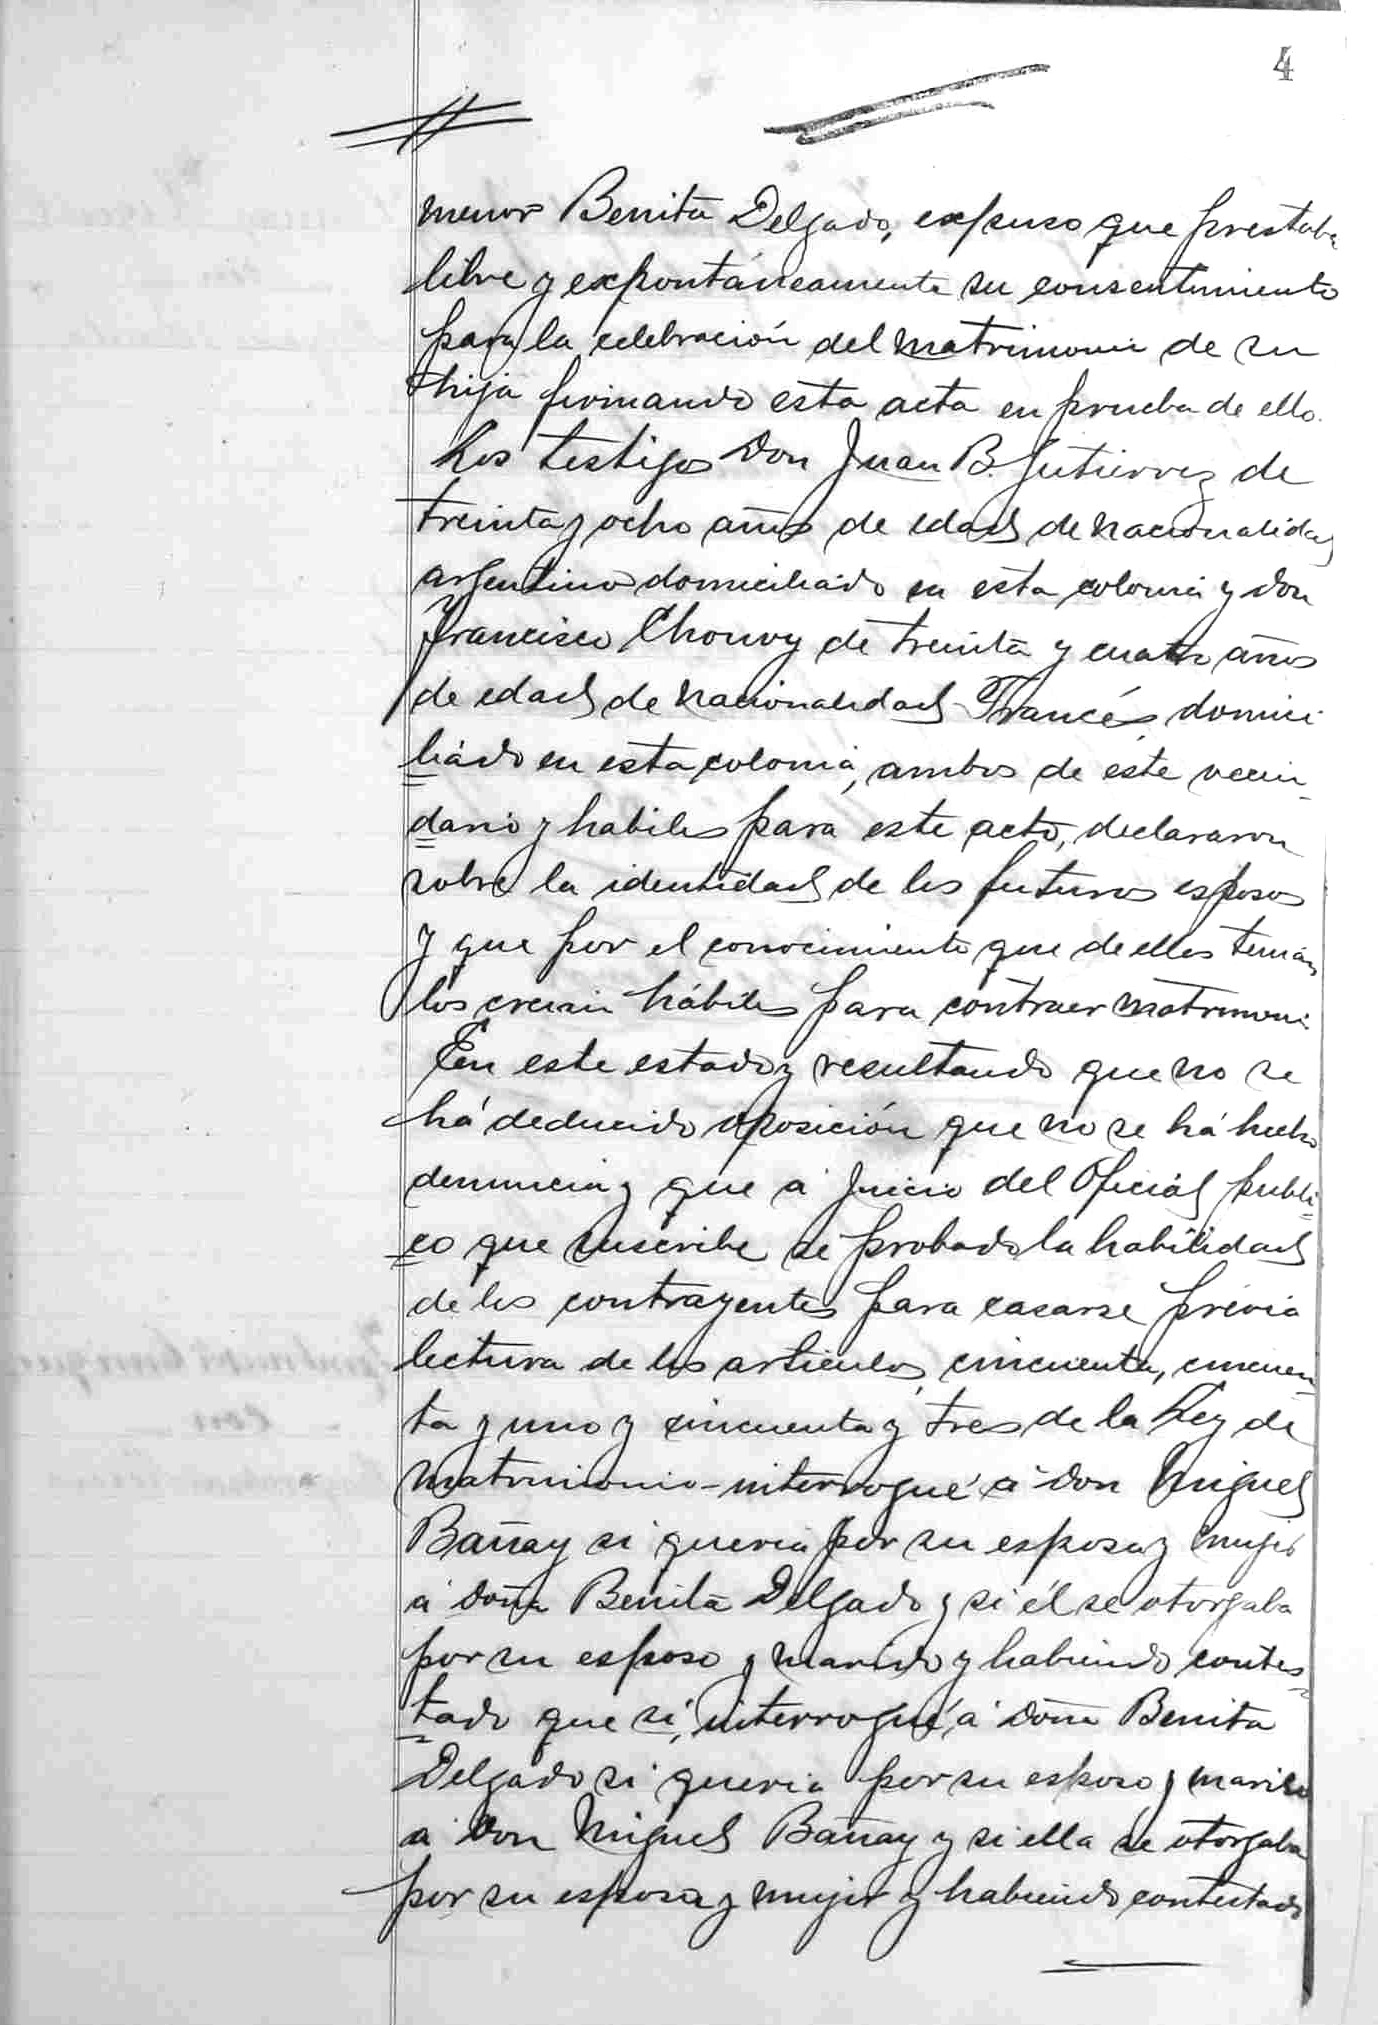 4
menor Benita Delgado, expuso que prestaba
libre y expontáneamente su consentimiento
para la celebración del matrimonio de su
hija firmando esta acta en prueba de ello.
Los testigos Don Juan B. Gutierrez de
treinta y ocho años de edad de nacionalidad
argentino domiciliado en esta colonia y don
Francisco Chouvy de treinta y cuatro años
de edad de nacionalidad Francés, domici
liado en esta colonia, ambos de este vecin-
dario y habiles para este acto, declararon
sobre la identidad de los futuros esposos
y que por el conocimiento que de ellos tenian
los creian hábiles para contraer matrimonio
En este estado y resultando que no se
há deducido oposición que no se há hecho
denuncia y que á juicio del Oficial publi=
co que suscribe se probado la habilidad
de los contrayentes para casarse prévia
lectura de los articulos cincuenta, cincuen-
ta y uno y cincuenta y tres de la Ley de
matrimonio-interrogué á don Miguel
Bañay si queria por su esposa y mujer
á doña Benita Delgado y si él se otorgaba
por su esposo y marido y habiendo contes=
tado que si, interrogué á doña Benita
Delgado si queria por su esposo y marido
á don Miguel Bañay y si ella se otorgaba
por su esposa y mujer y habiendo contestado